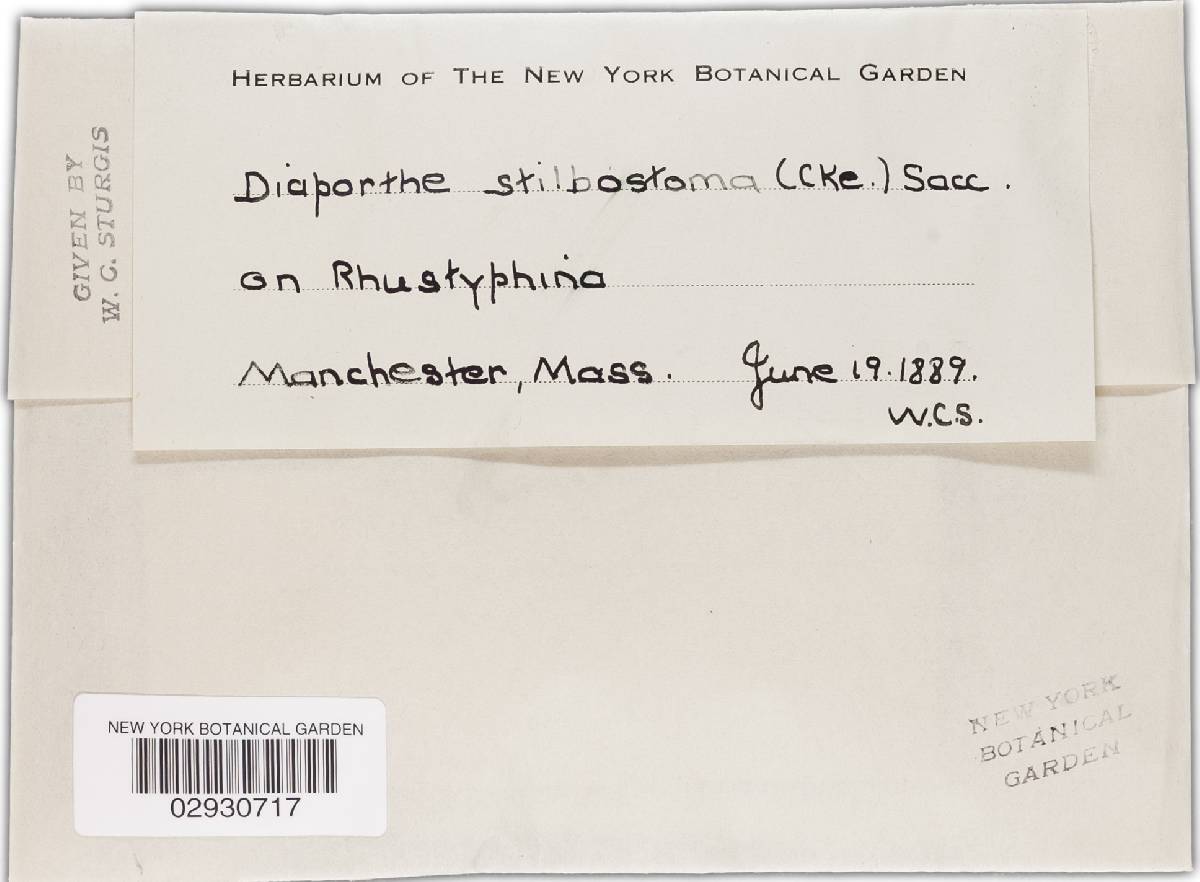 HERBARIUM OF THE NEW YORK BOTANICAL GARDEN
Diaporthe stilbostoma (CKe.) Sacc.
on Rhustyphina
Manchester, Mass. June 19.1889.
W.C.S.
GIVEN BY
W. C. STURGIS
NEW YORK BOTANICAL GARDEN
02930717
NEW YORK
BOTANICAL
GARDEN